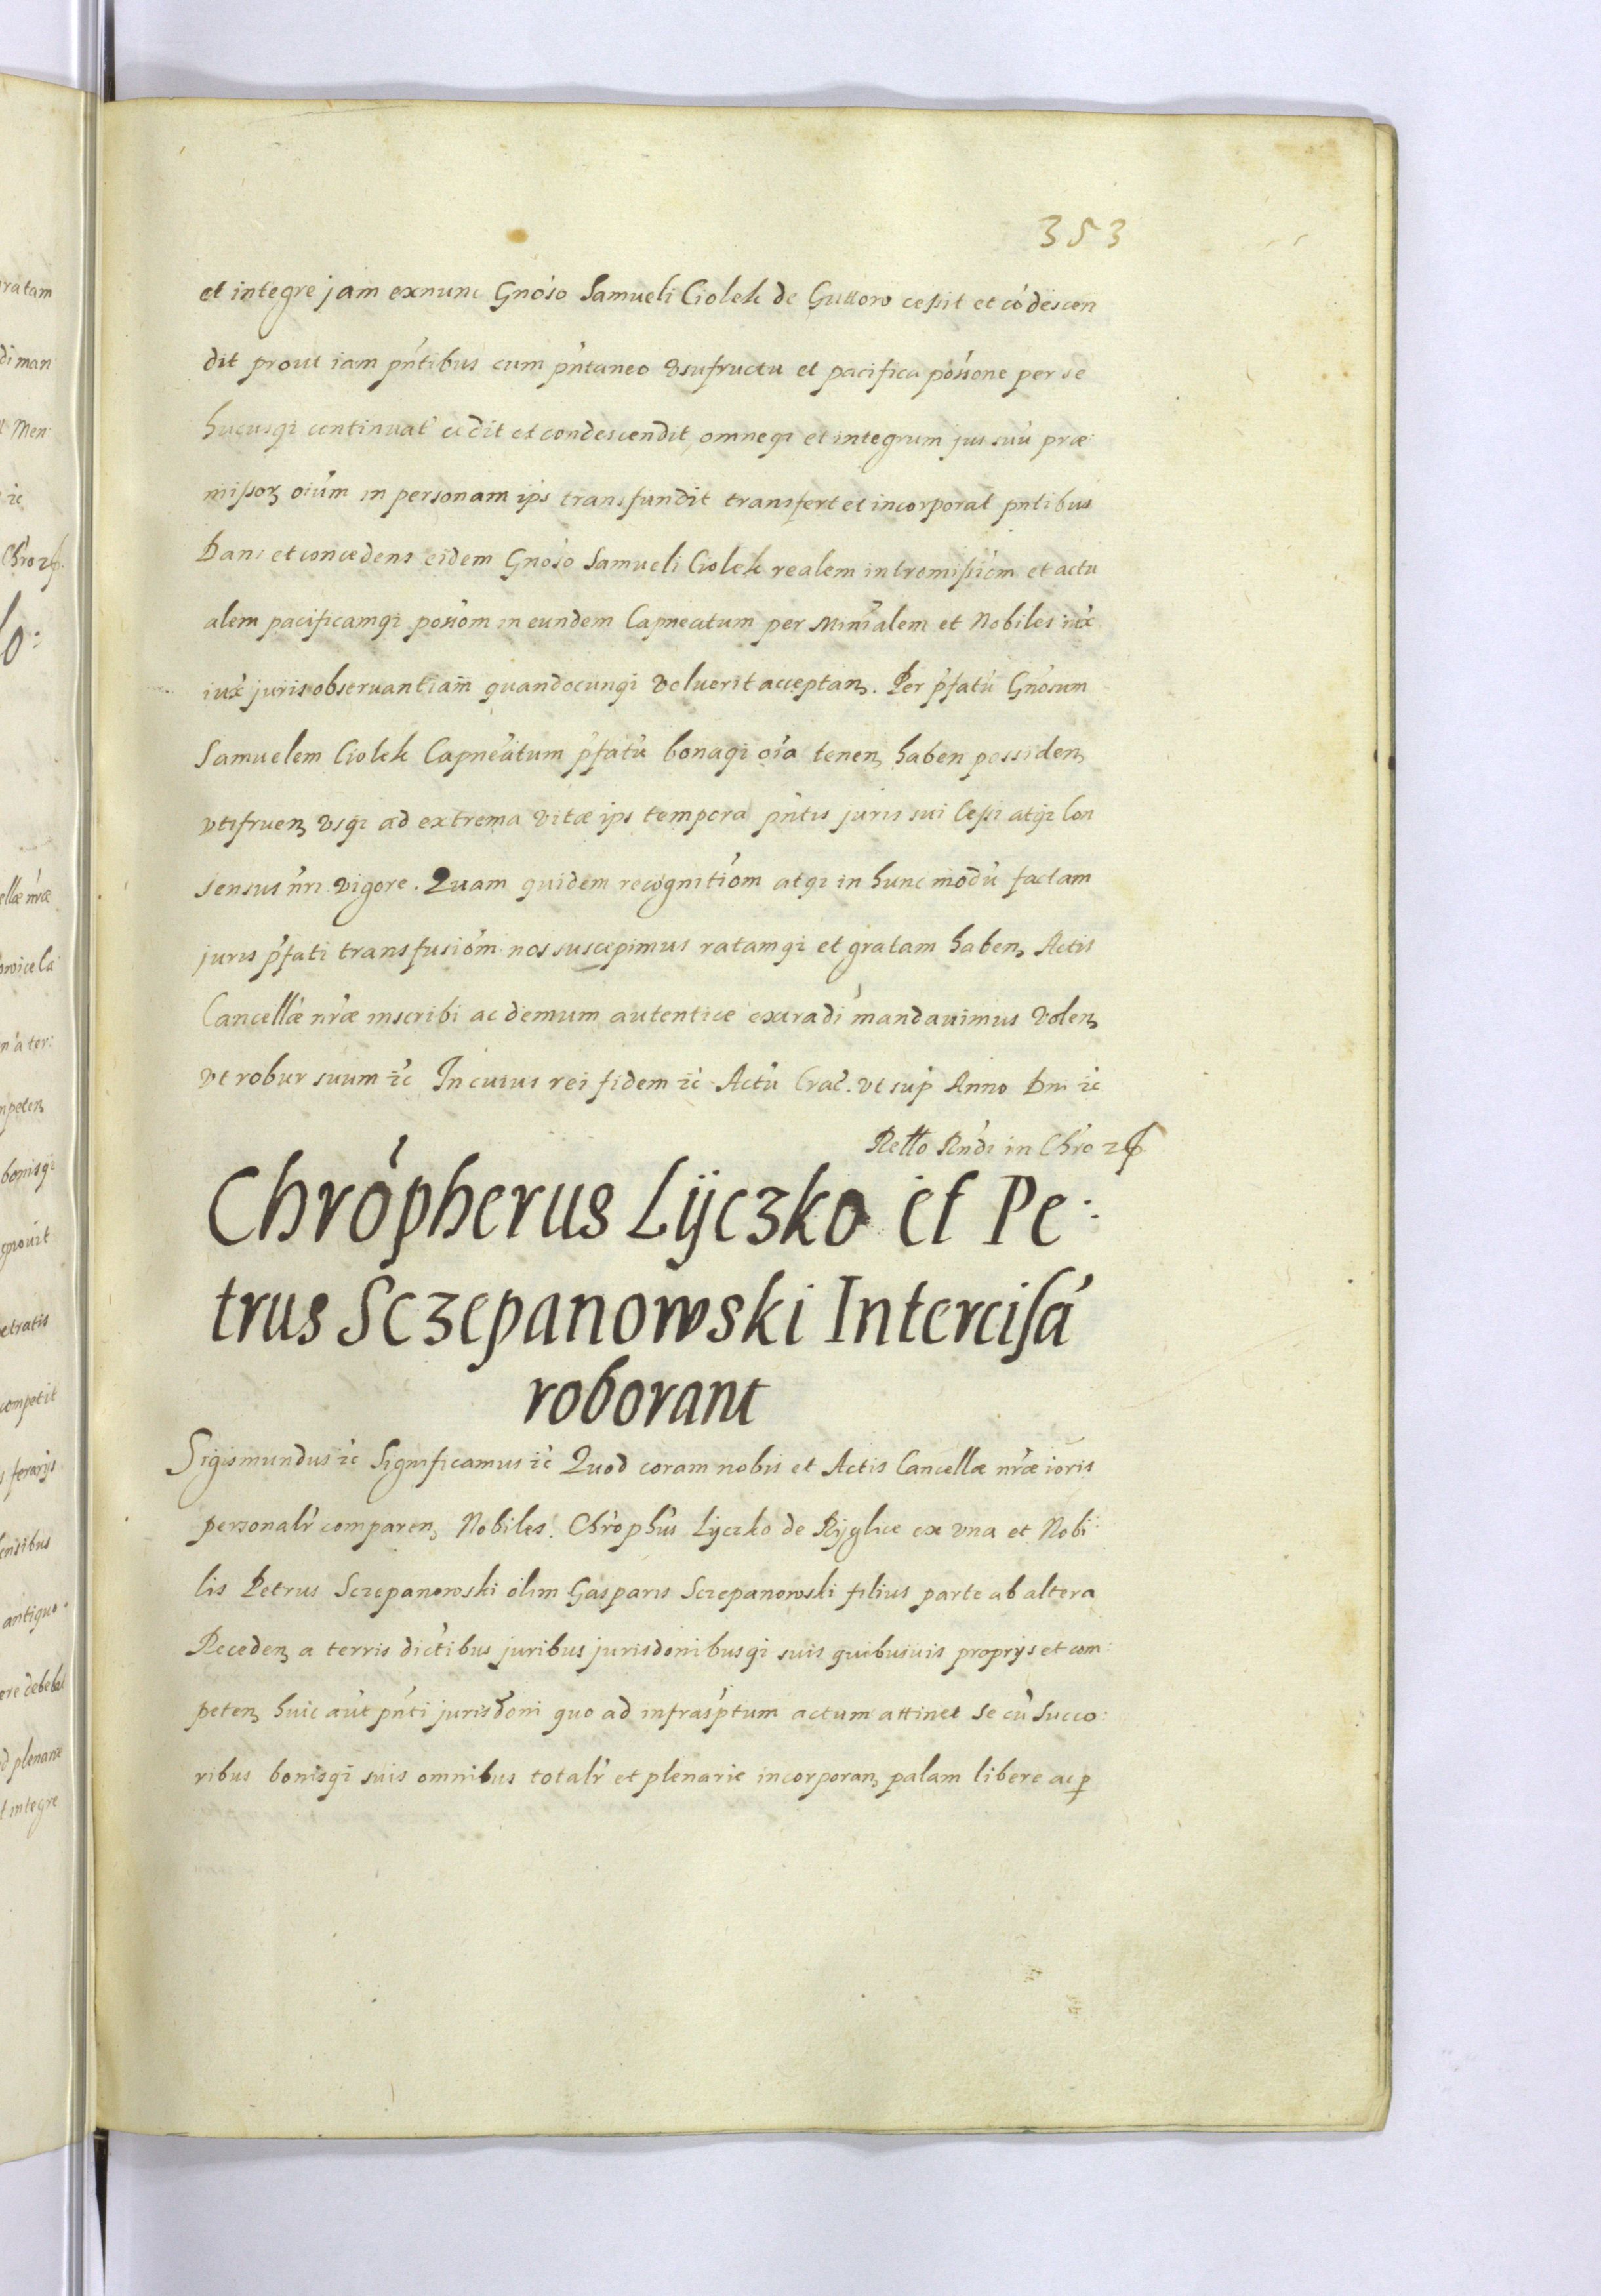 353
et integre jam exnunc Gnoso Samueli Ciolek de Guttoro cessit et codescen
dit prout iam pntibus cum pntaneo vsufructu et pacifica possone per se
hucusqi continuat cedit et condescendit, omneqi et integrum jus suu præ
missoꝝ oium in personam ips transfundit transfert et incorporat pntibus
Dans et concedens eidem Gnoso Samueli Ciolek realem intromissiom et actu
alem pacificamqi possom in eundem Capneatum per Minialem et Nobiles
iux juris observantiam quandocunqi voluerit acceptan. Per pfatu Gnosum
Samuelem Ciolek Capneatum pfatu bonaqi oia tenen haben possiden
vtifruen vsqi ad extrema vitæ ips tempora pntis juris sui Cessi atqi Con
sensus nri vigore. Quam quidem recognitiom atqi in hunc modu factam
juris pfati transfusiom nos suscepimus ratamqi et gratam haben Actis
Cancellæ nræ inscribi ac demum autentice extradi mandauimus Volen
vt robur suum ꝛc In cuius rei fidem ꝛc Actu Crac. vt sup Anno Dni ꝛc
Retto Rndi in Chro
Chropherus Lyczko et Pe:
trus Sczepanowski Intercisa
roborant
Sigismundus ꝛc Significamus ꝛc Quod coram nobis et Actis Cancellæ nræ ioris
personalr comparen Nobiles. Chrophus Lyczko de Ryglice ex vna et Nobi
lis Petrus Sczepanowski olim Gasparis Sczepanowski filius parte ab altera
Receden a terris dictibus juribus jurisdonibusqi suis quibusuis proprys et com:
peten huic aut pnti jurisdoni quo ad infrasptum actum attinet se cu Succo:
ribus bonisqi suis omnibus totalr et plenarie incorporan palam libere ac p